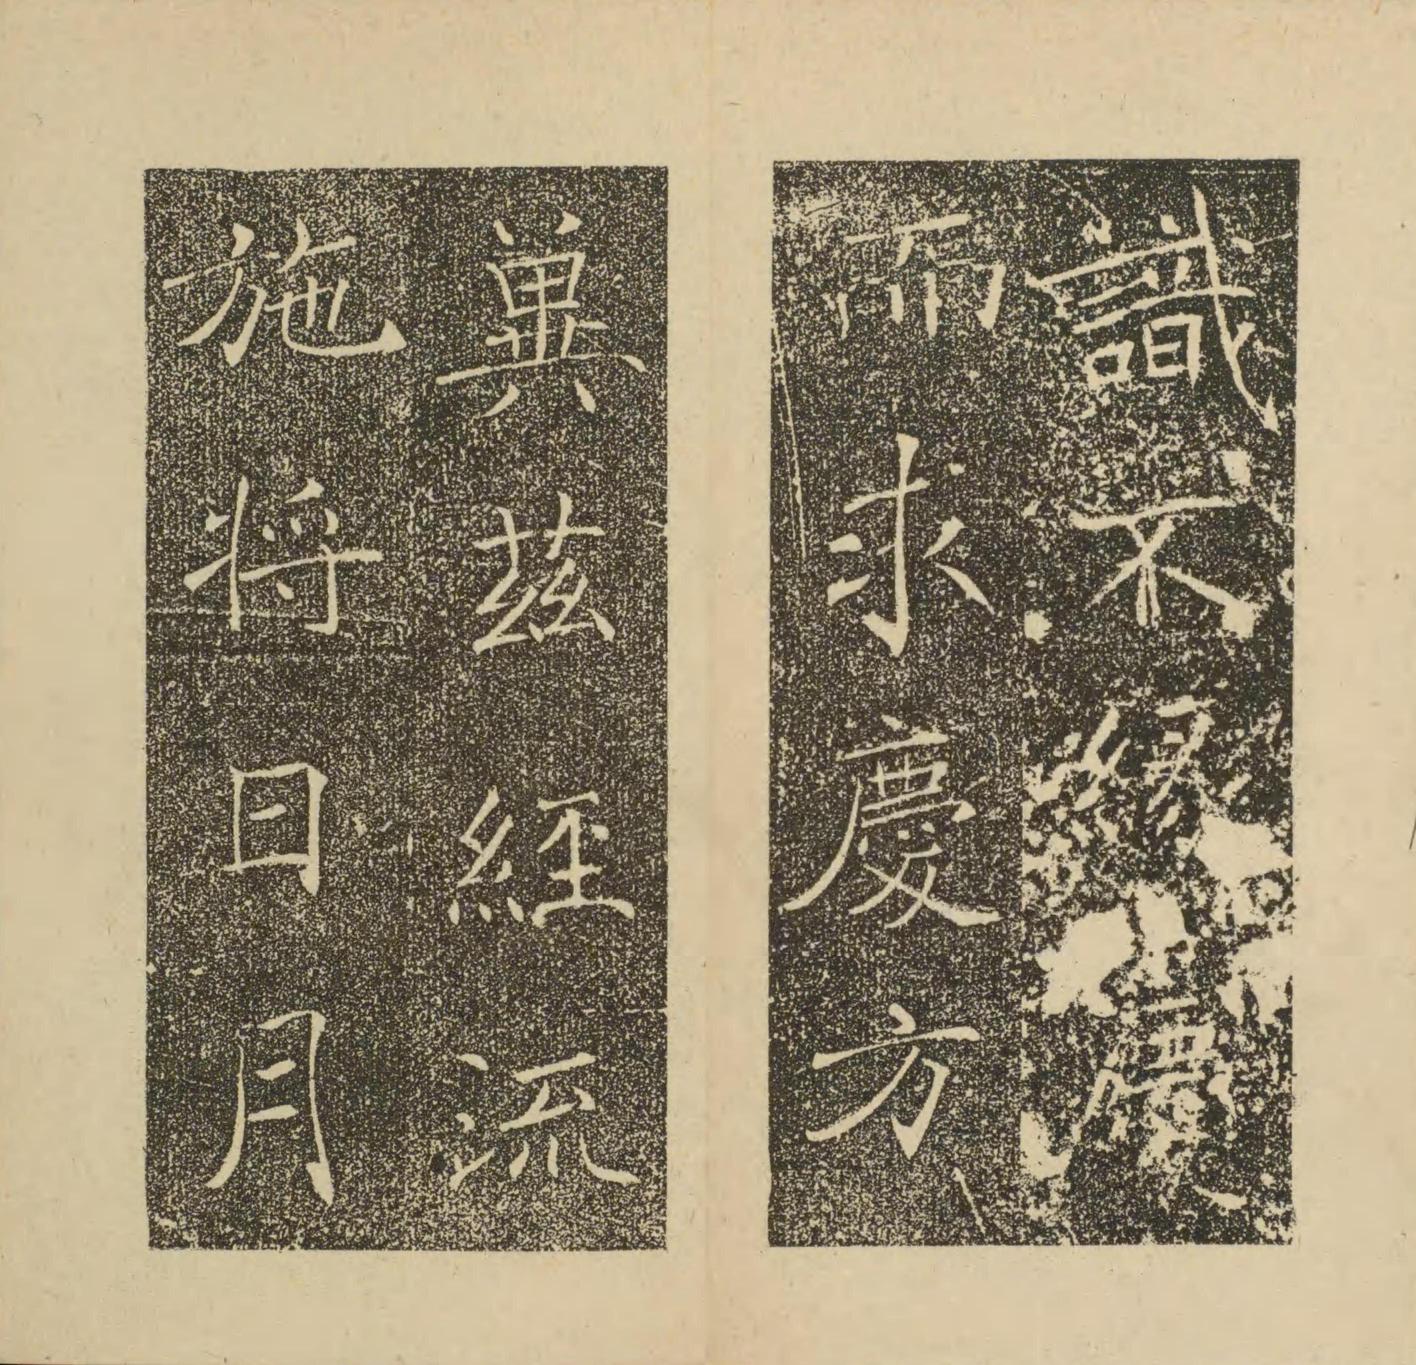 識不緣慶
而求慶方
冀茲經流
施将日月